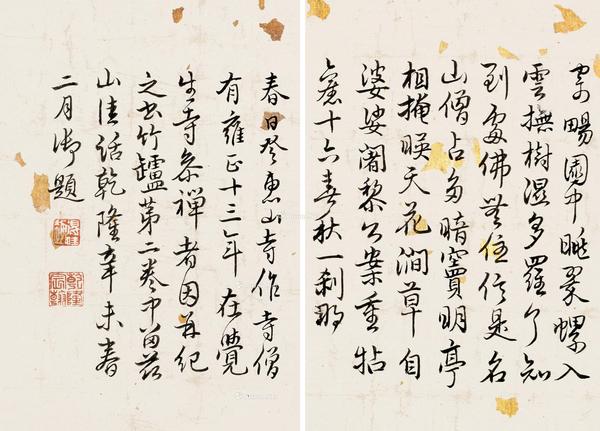 寄暢園中眺翠螺入
雲撫樹濕多羅了知
到處佛無住信是名
山僧占多暗竇明亭
相掩暎天花澗草自
婆娑闍黎公案重拈
舊十六春秋一剎那
春日登惠山寺作寺僧
有雍正十三年在覺
生寺參禪者因再紀
之書竹罏第二卷中留茲
山佳話乾隆辛未春
二月御題
乾隆
宸翰